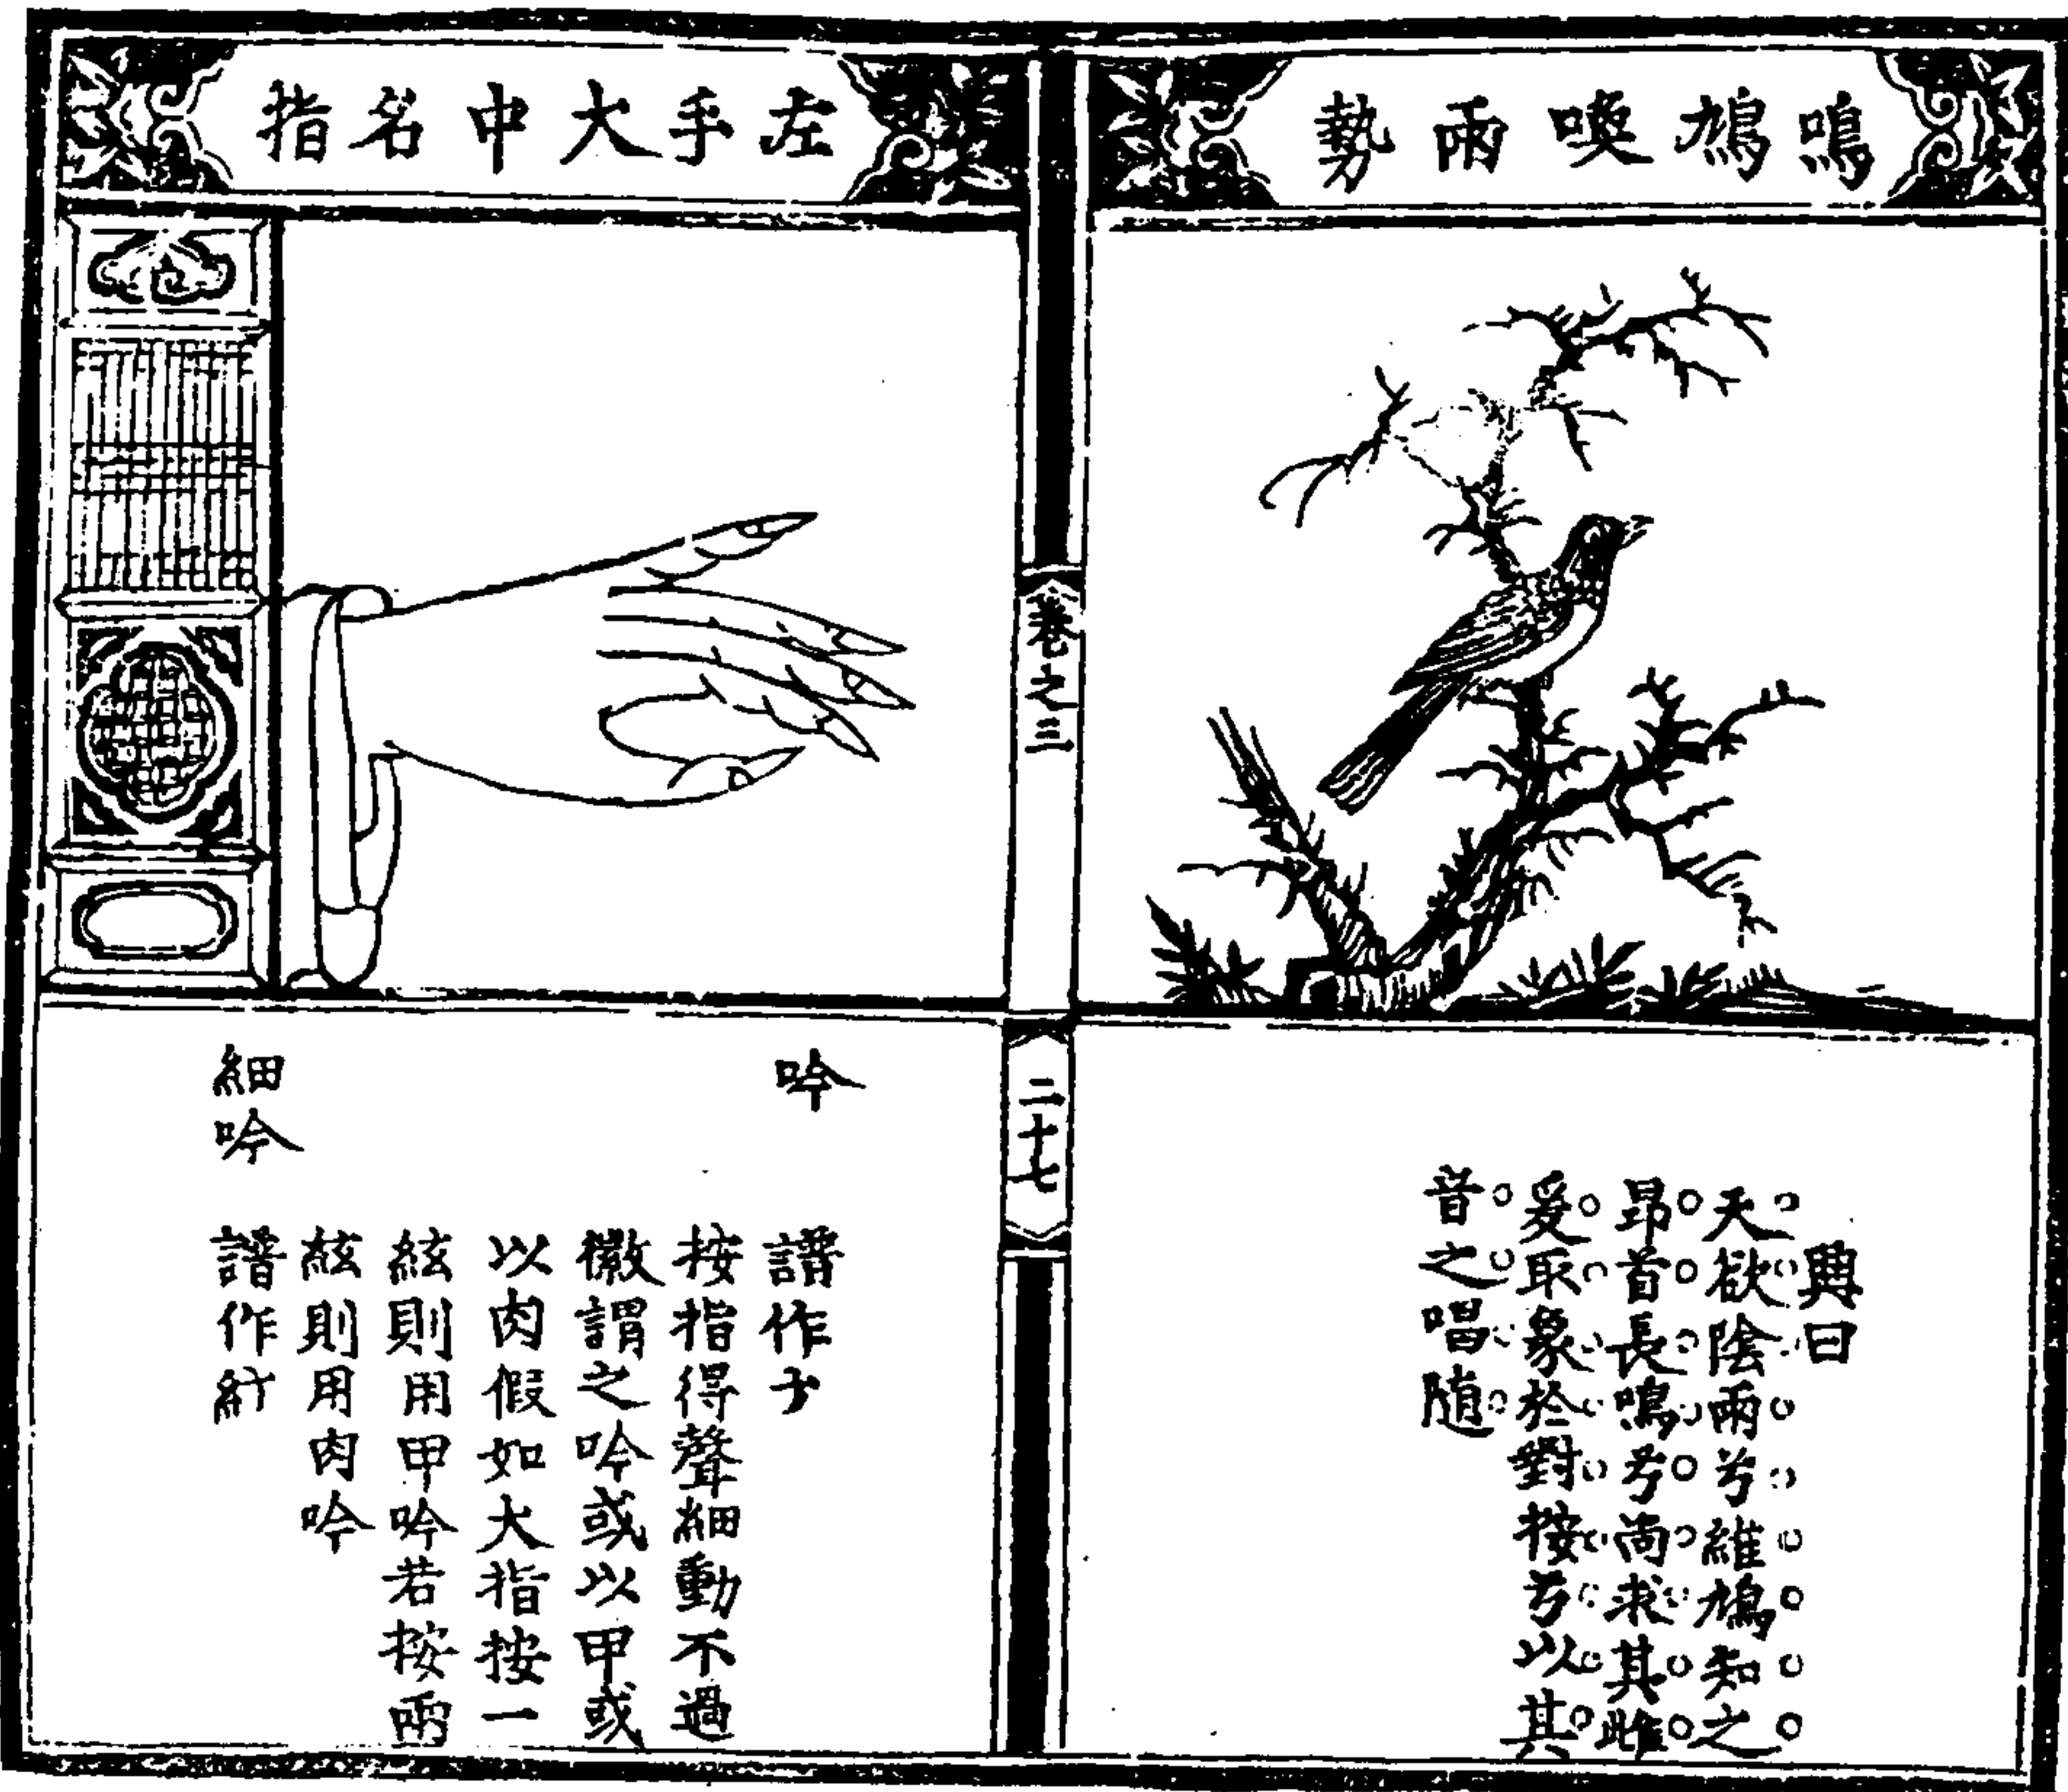 鳴鳩喚雨勢
興曰
天欲陰雨兮維鳩知之
昂首長鳴兮尚求其雌
爰取象於對按兮以其
音之唱随
卷之三
二十七
左手大中名指
吟
譜作
按指得聲細動不過
徽謂之吟或以甲或
以肉假如大指按一
絃則用甲吟若按兩
絃則用肉吟
細吟
譜作